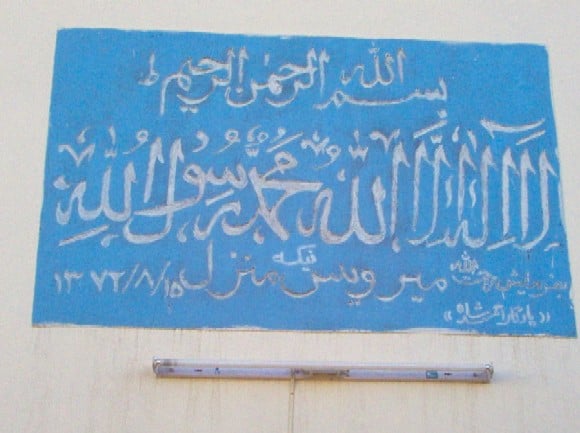 بسم الله الرحمن الرحیم ط
لَا اِلٰهَ اِلَّا اللّٰهُ مُحَمَّدٌ رَسُولُ اللّٰهِ
میرویس نیکه منزل ۱۳۷۲/۸/۱۵